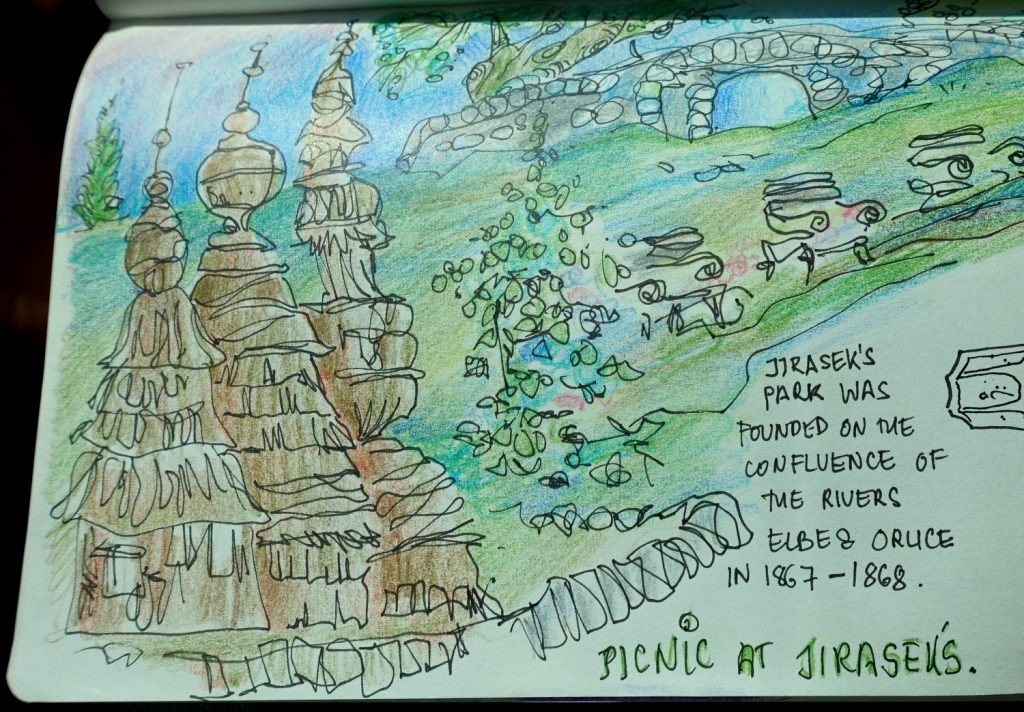 JIRASEK'S
PARK WAS
FOUNDED ON THE
CONFLUENCE OF
THE RIVERS
ELBE & ORLICE
IN 1867 – 1868.
PICNIC AT JIRASEK'S.